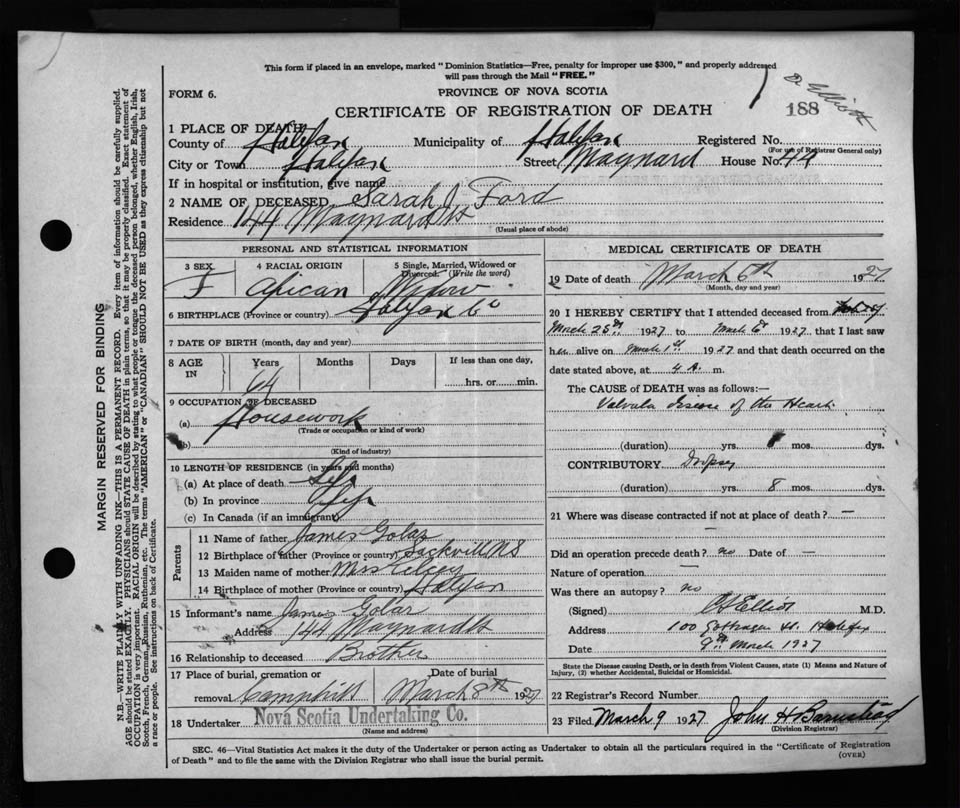 This form if placed in an envelope, marked "Dominion Statistics—Free, penalty for improper use $300," and properly addressed
will pass through the Mail "FREE."
FORM 6.
PROVINCE OF NOVA SCOTIA
188
CERTIFICATE OF REGISTRATION OF DEATH
1 PLACE OF DEATH
County of Halifax Municipality of Halifax Registered No.
(For use of Registrar General only)
City or Town Halifax Street Maynard House No. 44
If in hospital or institution, give name
2 NAME OF DECEASED Sarah J. Ford
Residence 144 Maynard St
(Usual place of abode)
PERSONAL AND STATISTICAL INFORMATION
3 SEX 4 RACIAL ORIGIN 5 Single, Married, Widowed or
Divorced. (Write the word)
F African Widow
6 BIRTHPLACE (Province or country) Halifax Co
7 DATE OF BIRTH (month, day and year)
8 AGE IN Years Months Days If less than one day,
64 hrs. or min.
9 OCCUPATION OF DECEASED
(a) Housework
(Trade or occupation or kind of work)
(b)
(Kind of industry)
10 LENGTH OF RESIDENCE (in years and months)
(a) At place of death Life
(b) In province Life
(c) In Canada (if an immigrant)
Parents
11 Name of father James Golar
12 Birthplace of father (Province or country) Sackvill NS
13 Maiden name of mother Mrs
14 Birthplace of mother (Province or country) Halifax
15 Informant's name James Golar
Address 144 Maynard St
16 Relationship to deceased Brother
17 Place of burial, cremation or Date of burial
removal Camphill March 8th 1927
18 Undertaker Nova Scotia Undertaking Co.
(Name and address)
MEDICAL CERTIFICATE OF DEATH
19 Date of death March 6th 1927
(Month, day and year)
20 I HEREBY CERTIFY that I attended deceased from
March 25th 1927 to March 6th 1927 that I last saw
her alive on March 1st 1927 and that death occurred on the
date stated above, at 4 A. m.
The CAUSE of DEATH was as follows:—
Valvula disease of the Heart
(duration) yrs. mos. dys.
CONTRIBUTORY Dropsy
(duration) yrs. 8 mos. dys.
21 Where was disease contracted if not at place of death? —
Did an operation precede death? no Date of —
Nature of operation —
Was there an autopsy? no
(Signed) Elliot M.D.
Address 100 Gottingen St. Halifax
Date 9th March 1927
State the Disease causing Death, or in death from Violent Causes, state (1) Means and Nature of
Injury, (2) whether Accidental, Suicidal or Homicidal.
22 Registrar's Record Number
23 Filed March 9 1927 John H Barnstead
(Division Registrar)
SEC. 46—Vital Statistics Act makes it the duty of the Undertaker or person acting as Undertaker to obtain all the particulars required in the "Certificate of Registration
of Death" and to file the same with the Division Registrar who shall issue the burial permit.
(OVER)
MARGIN RESERVED FOR BINDING
N.B.—WRITE PLAINLY WITH UNFADING INK—THIS IS A PERMANENT RECORD. Every item of information should be carefully supplied.
AGE should be stated EXACTLY. PHYSICIANS should STATE CAUSE OF DEATH in plain terms, so that it may be properly classified. Exact statement of
OCCUPATION is very important. RACIAL ORIGIN will be described by stating to what people or tongue the deceased person belonged, whether English, Irish,
Scotch, French, German, Russian, Ruthenian, etc. The terms "AMERICAN" or "CANADIAN" SHOULD NOT BE USED as they express citizenship but not
a race or people. See instructions on back of Certificate.